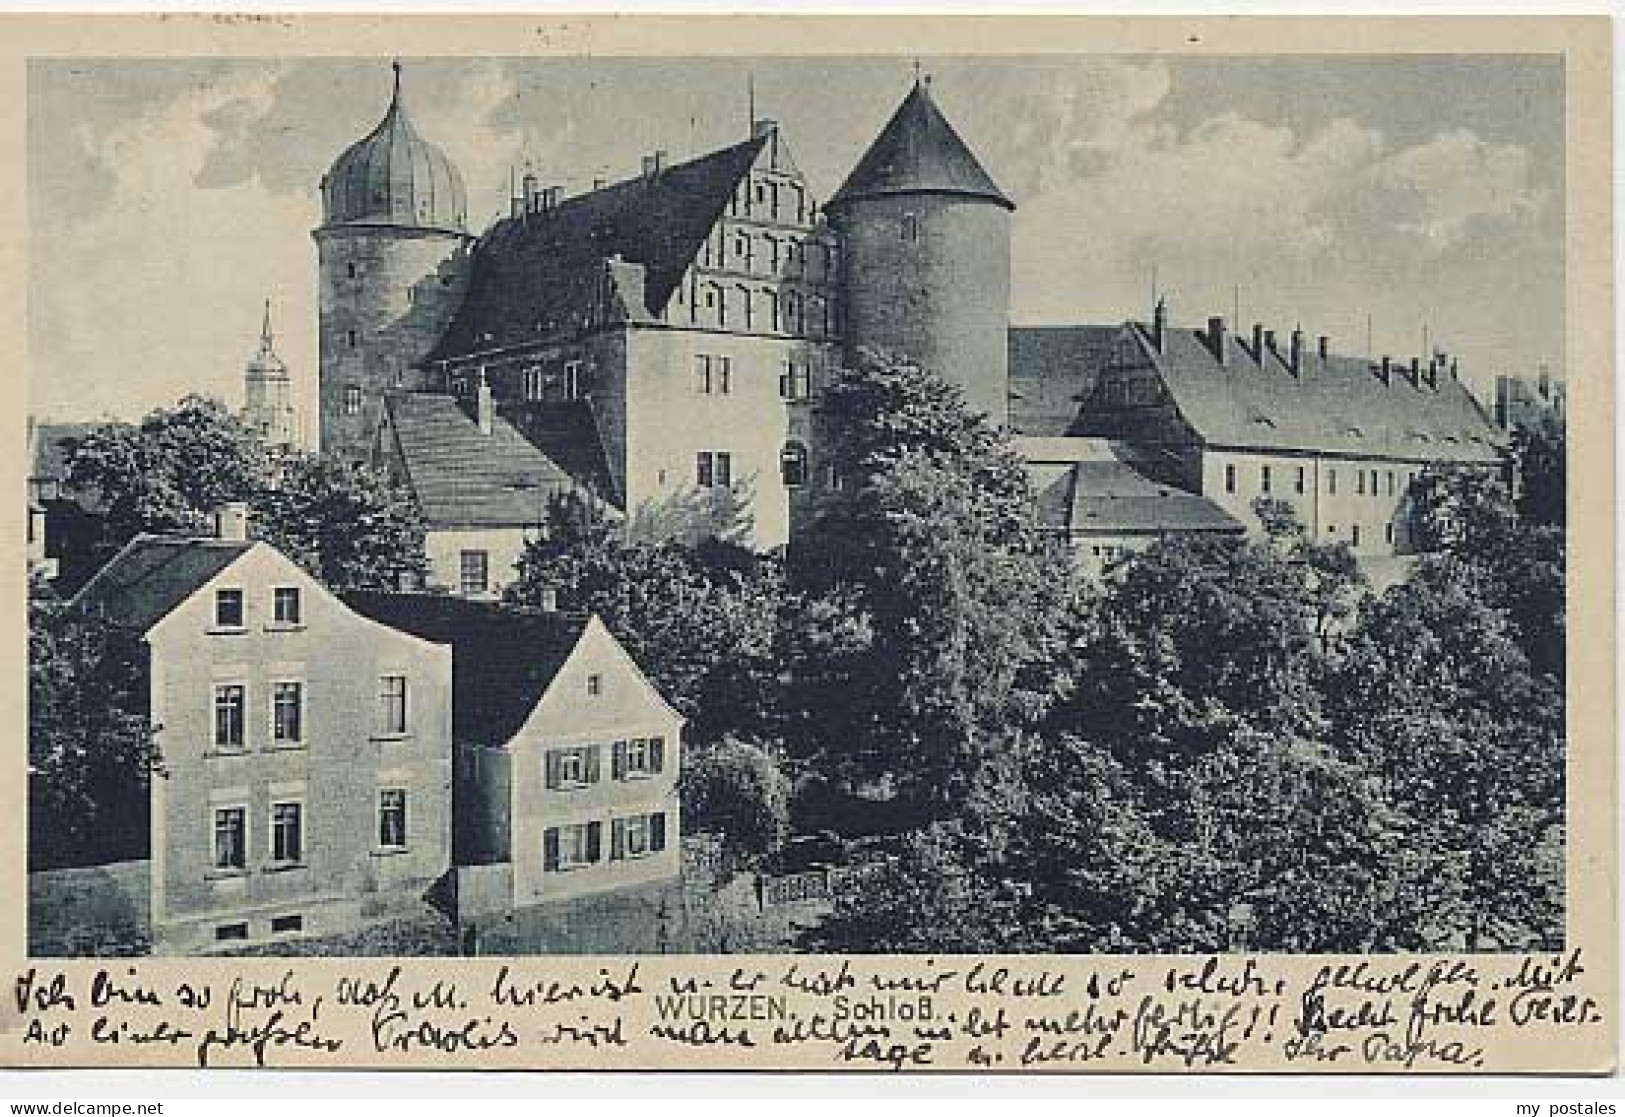 Ich bin so froh, daß M. hier ist u. er hat mir heute so schön geholfen. Mit
WURZEN. Schloß.
so einer großen Praxis wird man allein nicht mehr fertig!! Recht frohe Feier-
tage u. herzl. Grüße Ihr Papa.
delcampe.net
my_postales